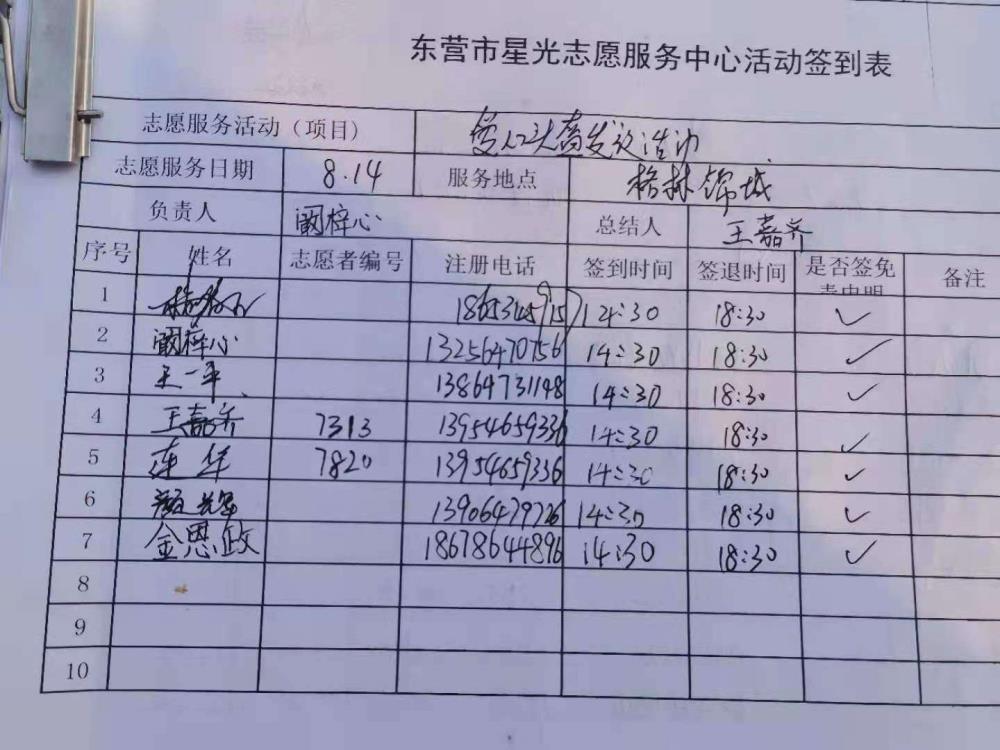 东营市星光志愿服务中心活动签到表
志愿服务活动（项目） 爱心头套发放活动
志愿服务日期 8.14 服务地点 格林锦城
负责人 阚梓心 总结人 王嘉齐
序号 姓名 志愿者编号 注册电话 签到时间 签退时间 是否签免责申明 备注
1 14:30 18:30 ✓
2 阚梓心 13256470756 14:30 18:30 ✓
3 王一平 13864731148 14:30 18:30 ✓
4 王嘉齐 7313 13954659336 14:30 18:30 ✓
5 连华 7820 13954659336 14:30 18:30 ✓
6 颜 13906479726 14:30 18:30 ✓
7 金恩政 18678644896 14:30 18:30 ✓
8
9
10